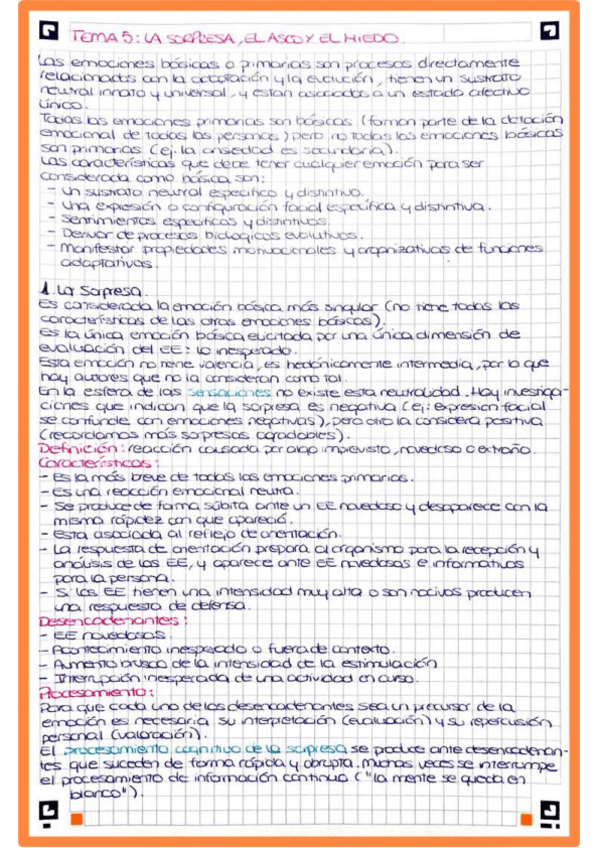 TEMA 5: LA SORPRESA, EL ASCO Y EL MIEDO.
Las emociones básicas o primarias son procesos directamente
relacionados con la adaptación y la evolución, tienen un sustrato
neutral innato y universal, y están asociados a un estado afectivo
único.
Todas las emociones primarias son básicas (forman parte de la dotación
emocional de todas las personas) pero no todas las emociones básicas
son primarias (ej. la ansiedad es secundaria).
Las características que debe tener cualquier emoción para ser
considerada como básica son:
- Un sustrato neutral específico y distintivo.
- Una expresión o configuración facial específica y distintiva.
- Sentimientos específicos y distintivos.
- Derivar de procesos biológicos evolutivos.
- Manifestar propiedades motivacionales y organizativas de funciones
adaptativas.
1. La Sorpresa.
Es considerada la emoción básica más singular (no tiene todas las
características de las otras emociones básicas).
Es la única emoción básica elicitada por una única dimensión de
evaluación del EE: lo inesperado.
Esta emoción no tiene valencia, es hedónicamente intermedia, por lo que
hay autores que no la consideran como tal.
En la esfera de las sensaciones no existe esta neutralidad. Hay investiga-
ciones que indican que la sorpresa es negativa (ej: expresión facial
se confunde con emociones negativas), pero otro la considera positiva
(recordamos más sorpresas agradables).
Definición: reacción causada por algo imprevisto, novedoso o extraño.
Características:
- Es la más breve de todas las emociones primarias.
- Es una reacción emocional neutra.
- Se produce de forma súbita ante un EE novedoso y desaparece con la
misma rapidez con que apareció.
- Esta asociada al reflejo de orientación.
- La respuesta de orientación prepara al organismo para la recepción y
análisis de los EE, y aparece ante EE novedosos e informativos
para la persona.
- Si los EE tienen una intensidad muy alta o son nocivos producen
una respuesta de defensa.
Desencadenantes:
- EE novedosos.
- Acontecimiento inesperado o fuera de contexto.
- Aumento brusco de la intensidad de la estimulación
- Interrupción inesperada de una actividad en curso.
Procesamiento:
Para que cada uno de los desencadenantes sea un precursor de la
emoción es necesaria su interpretación (evaluación) y su repercusión
personal (valoración).
El procesamiento cognitivo de la sorpresa se produce ante desencadenan-
tes que suceden de forma rápida y abrupta. Muchas veces se interrumpe
el procesamiento de información continua ("la mente se queda en
blanco").